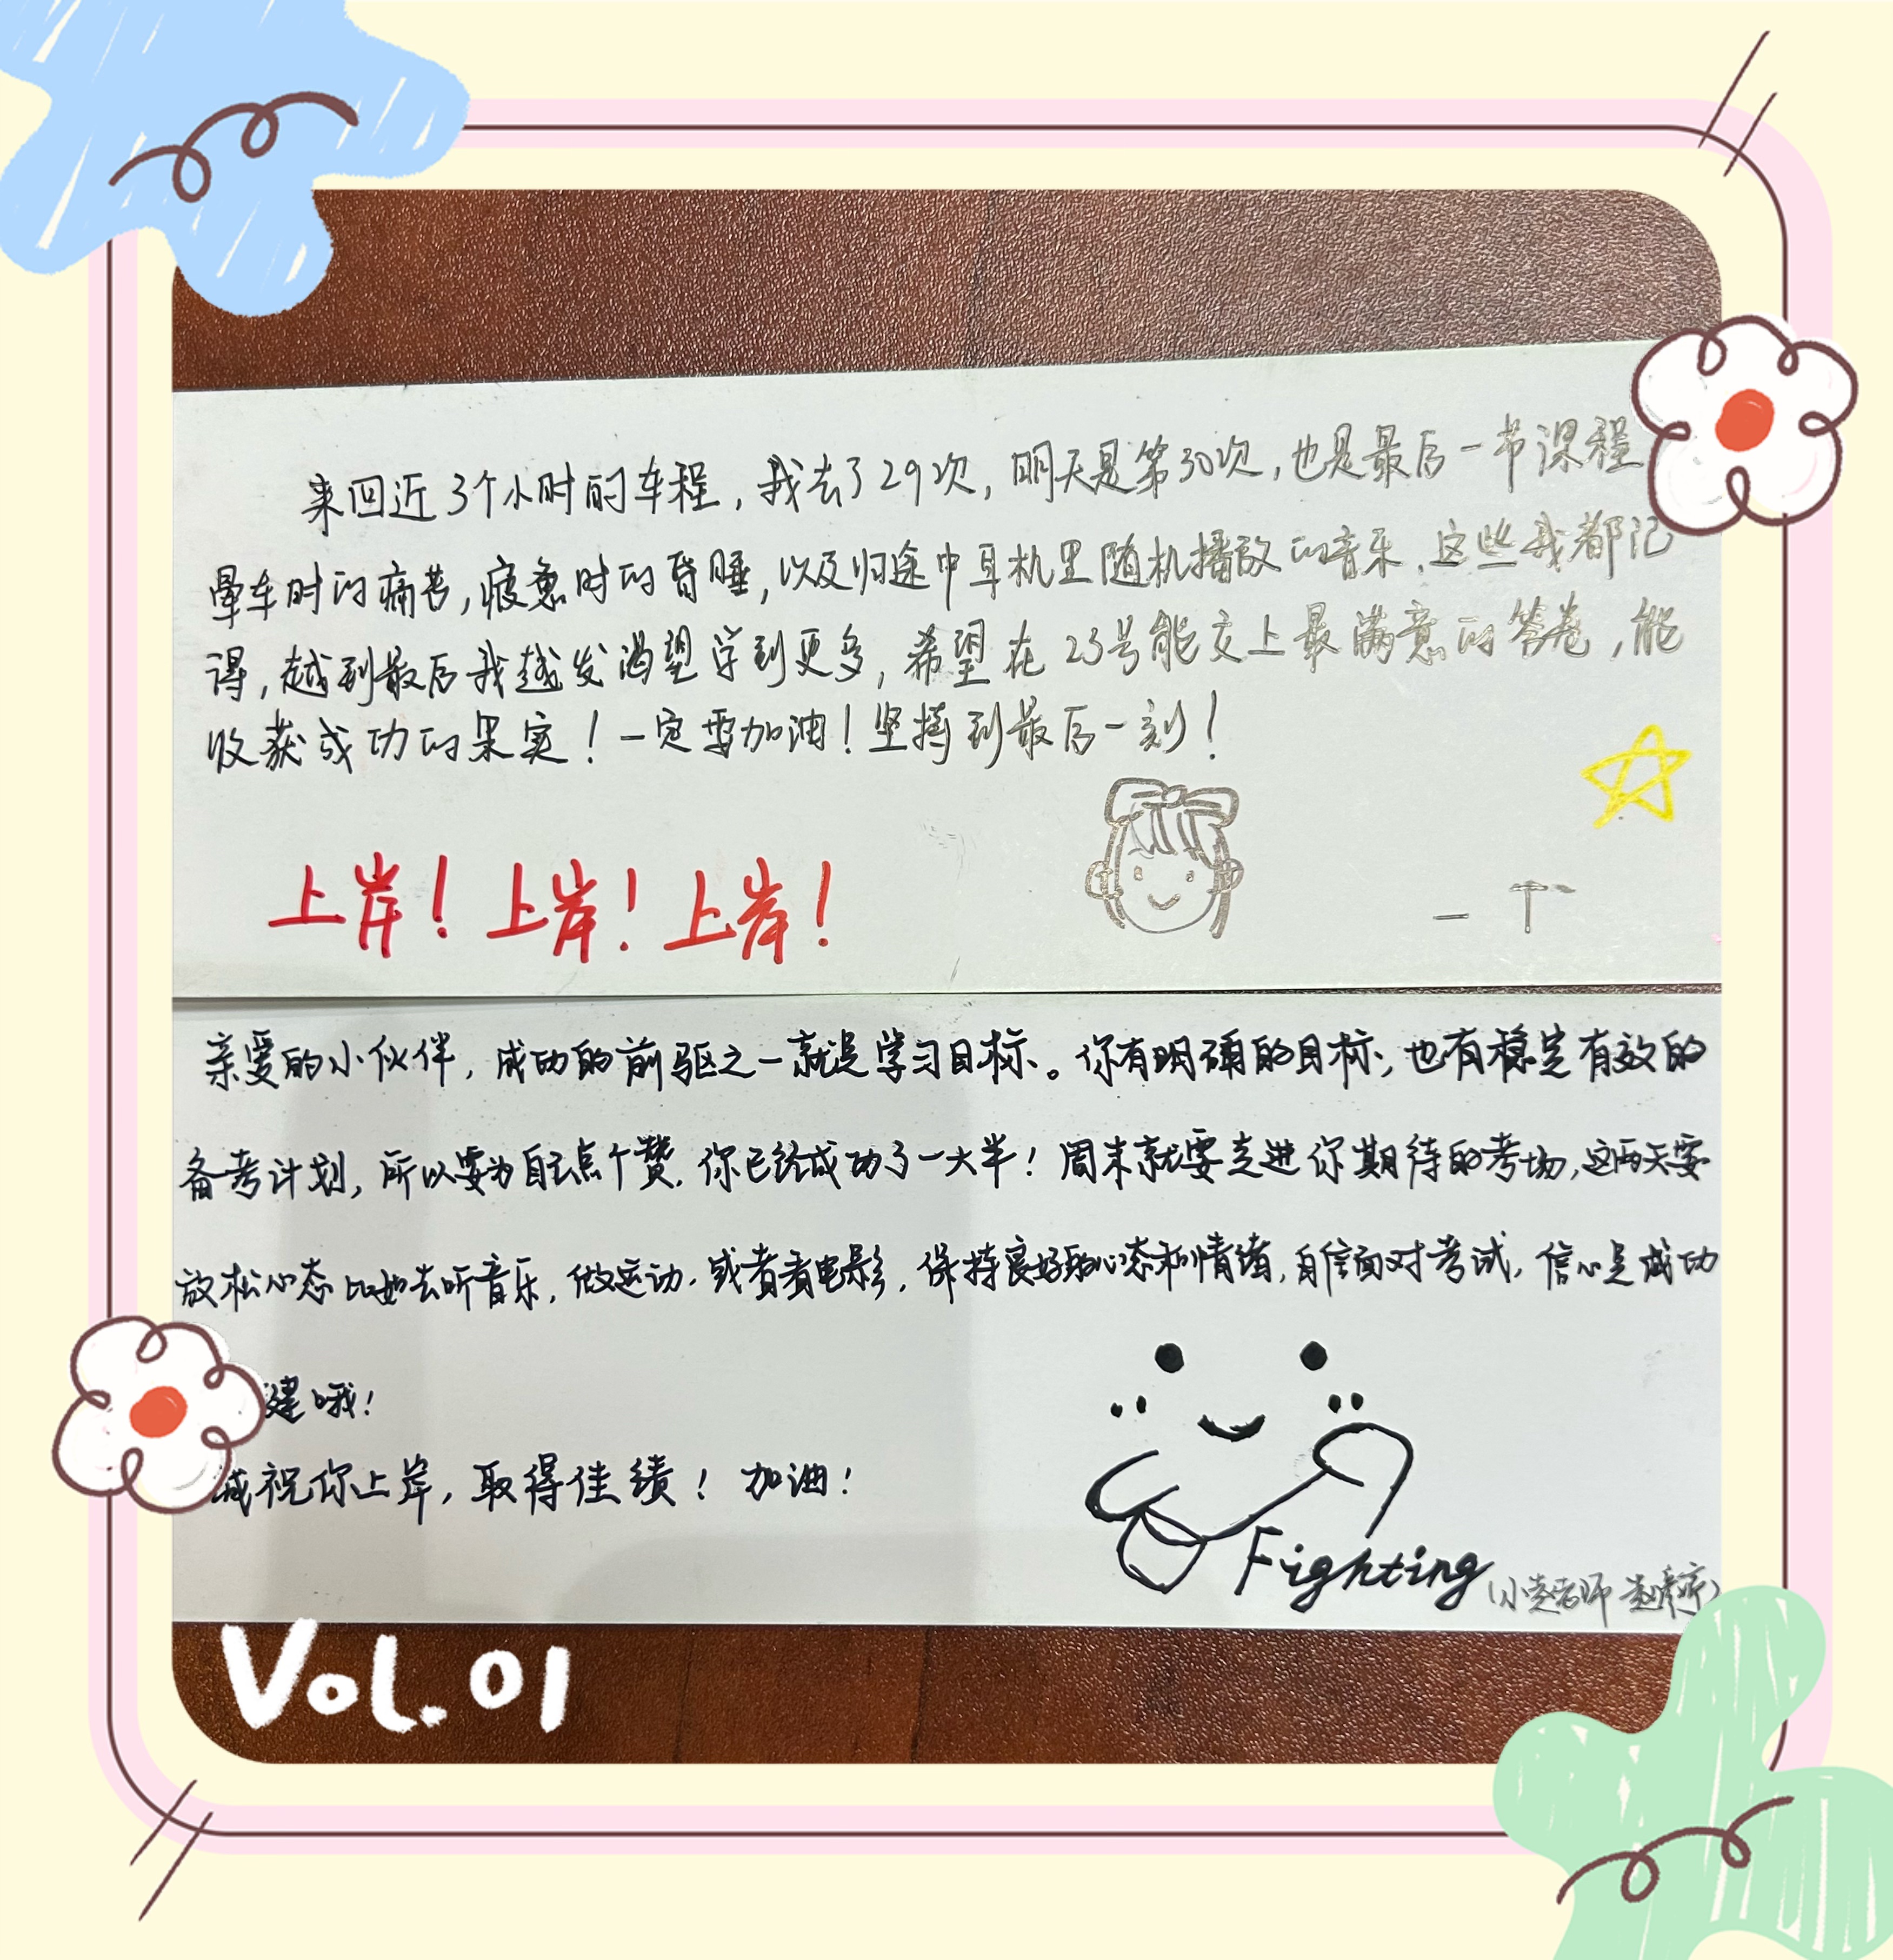 来回近3个小时的车程，我去了29次，明天是第30次，也是最后一节课程
晕车时的痛苦，疲惫时的昏睡，以及归途中耳机里随机播放的音乐，这些我都记
得，越到最后我越发渴望学到更多，希望在23号能交上最满意的答卷，能
收获成功的果实！一定要加油！坚持到最后一刻！
上岸！上岸！上岸！
亲爱的小伙伴，成功的前驱之一就是学习目标。你有明确的目标，也有稳定有效的
备考计划，所以要为自己点个赞，你已经成功了一大半！周末就要走进你期待的考场，这两天要
放松心态比如去听音乐，做运动，或者看电影，保持良好的心态和情绪，自信面对考试，信心是成功
键哦！
诚祝你上岸，取得佳绩！加油！
Fighting
Vol.01